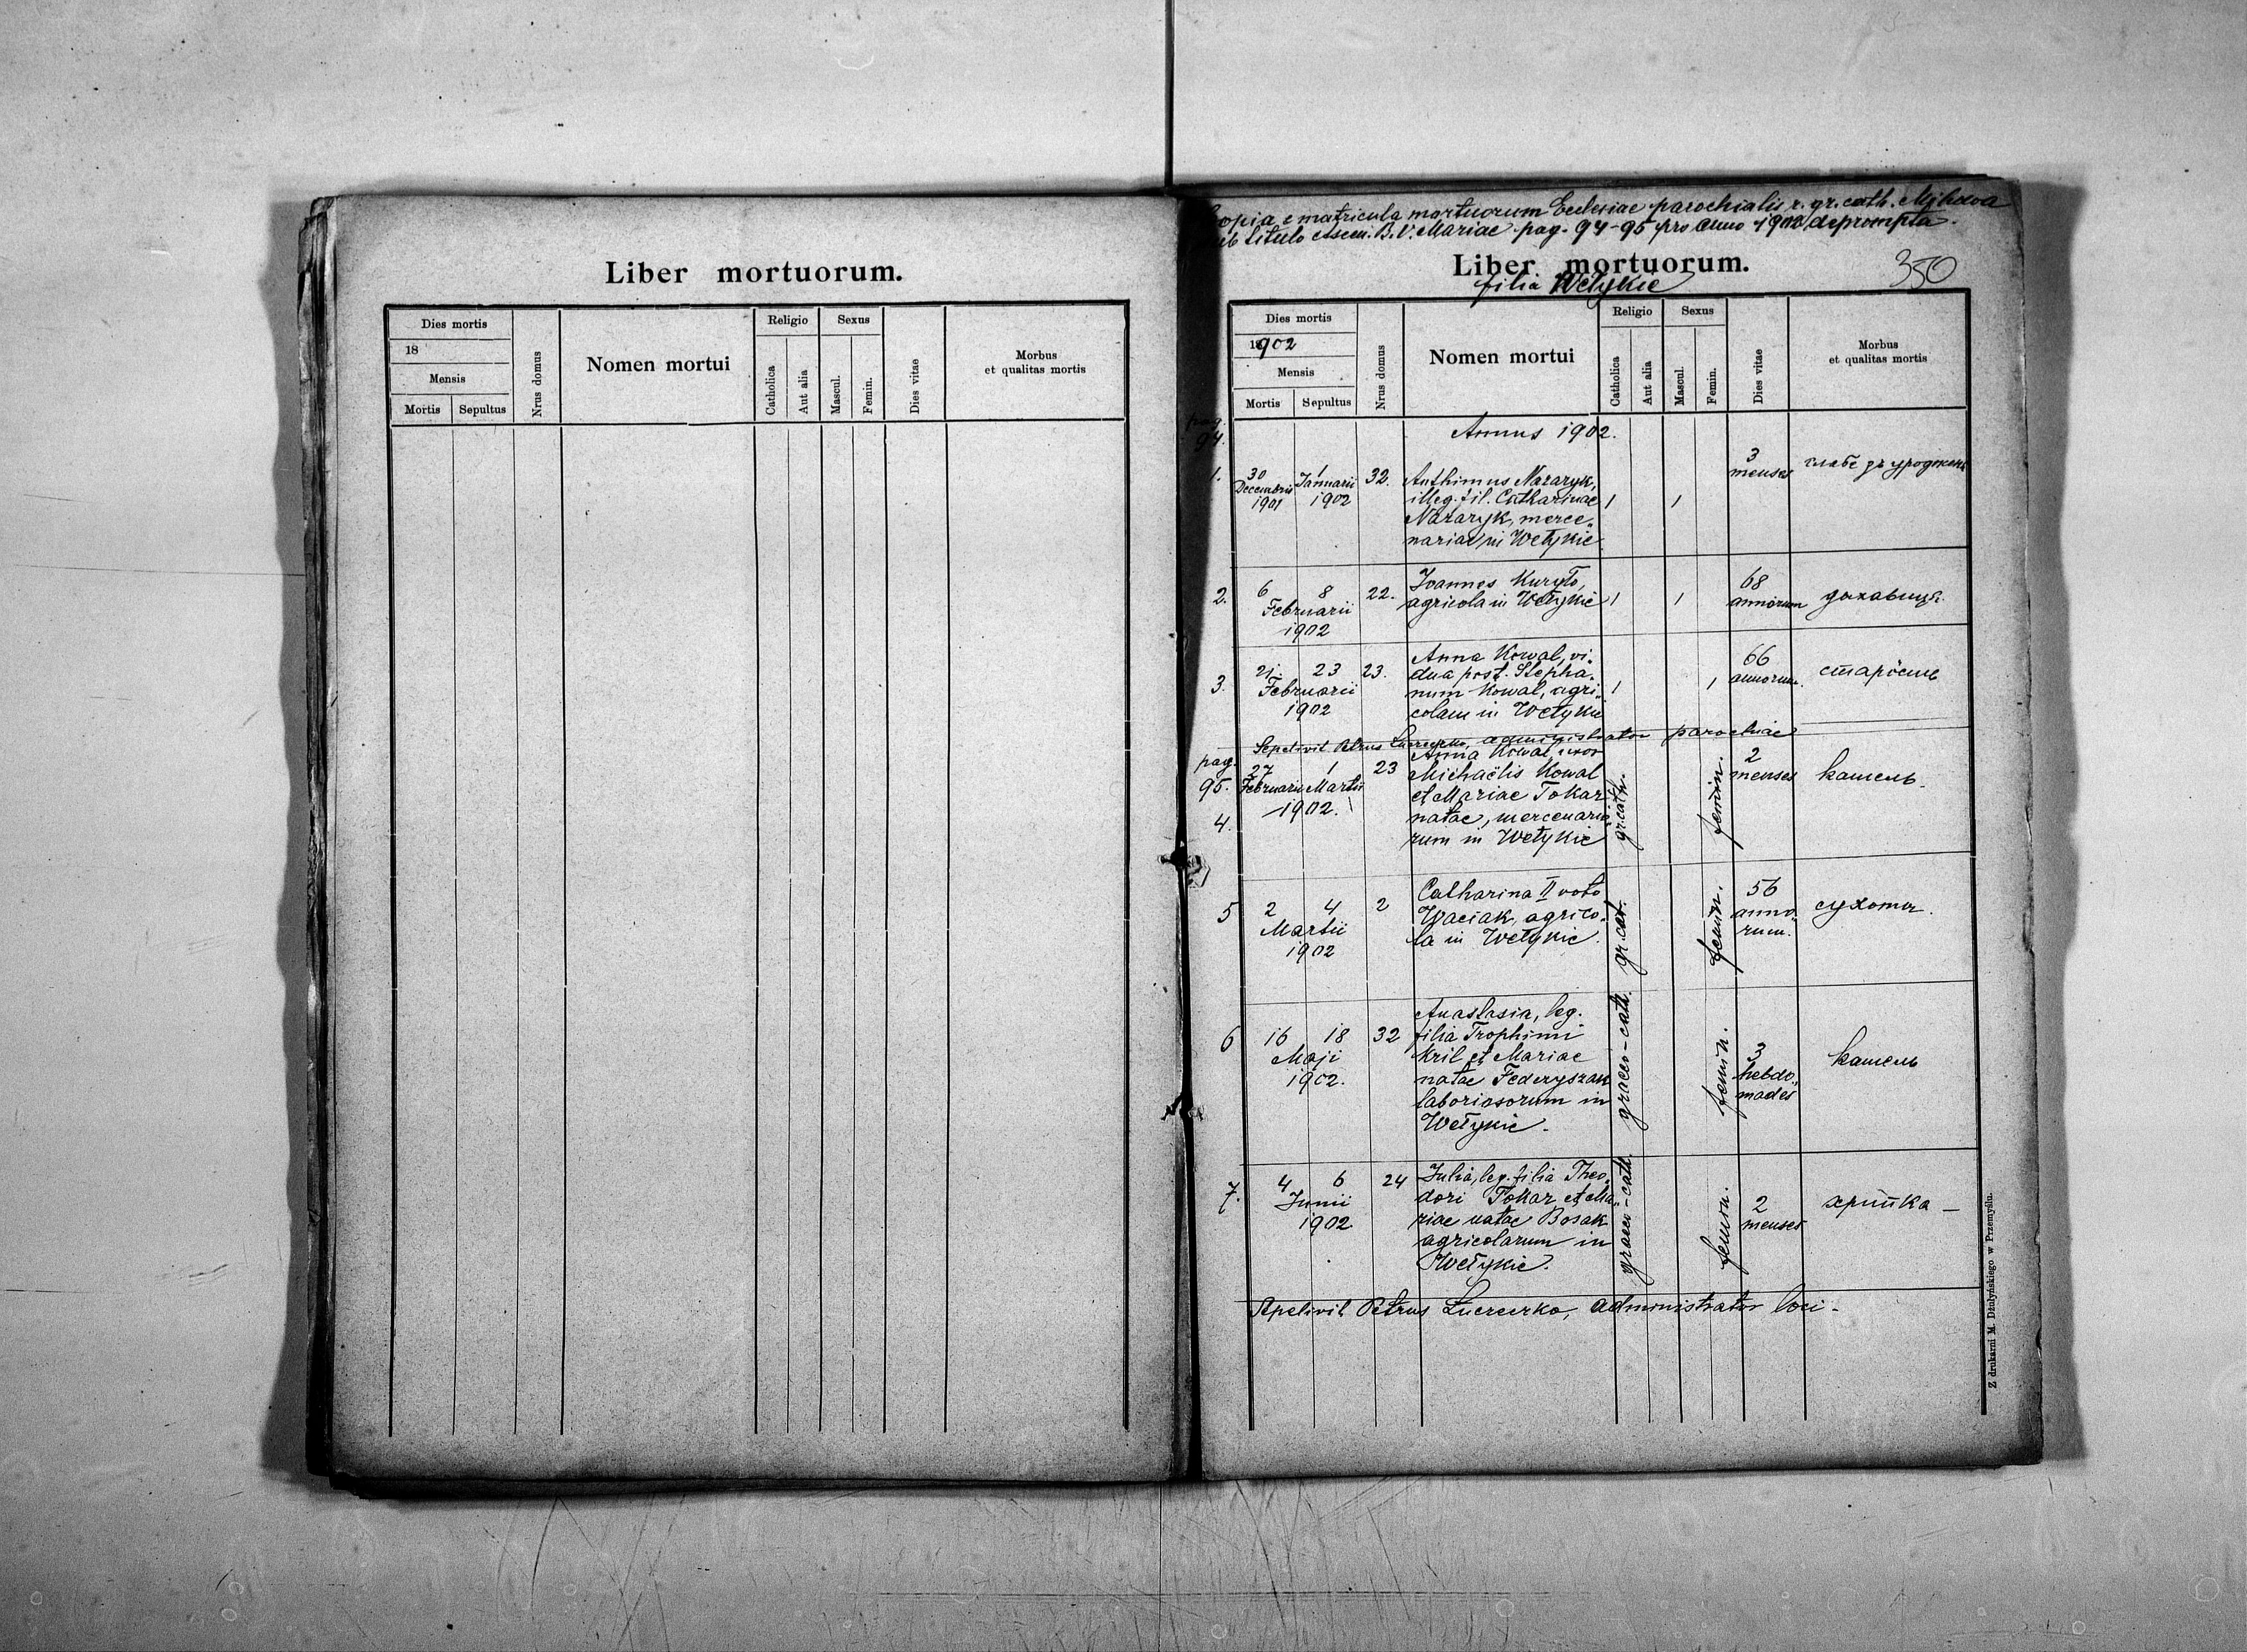 Liber mortuorum.
Dies mortis
18
Mensis
Mortis Sepultus
Nrus domus
Nomen mortui
Religio
Catholica
Aut alia
Sexus
Mascul.
Femin.
Dies vitae
Morbus
et qualitas mortis
Copia e matricula mortuorum Ecclesiae parochialis r. gr. cath. Mihowa
sub titulo Assum. B. V. Mariae pag. 94-95 pro Anno 1902 deprompta.
350
Liber mortuorum.
filia Wełykie
Dies mortis
1902
Mensis
Mortis Sepultus
Nrus domus
Nomen mortui
Religio
Catholica
Aut alia
Sexus
Mascul.
Femin.
Dies vitae
Morbus
et qualitas mortis
pag.
94.
Annus 1902.
1.
30 Decembris 1901
1 Januarii 1902
32.
Anthimus Nazaryk,
illeg. fil. Catharinae
Nazaryk, merce„
nariae in Wełykie
1 1
3
menses
2.
6 8
Februarii
1902
22.
Joannes Kuryło,
agricola in Wełykie
1 1
68
annorum
дихавиця.
3.
21 23
Februarii
1902
23.
Anna Kowal, vi„
dua post. Stepha„
num Kowal, agri„
colam in Wełykie
1 1
66
annorum.
старôсть
Sepelivit Petrus administrator parochiae
pag.
95.
4.
27 1
Februarii Martii
1902.
23
Anna Kowal, uxor
Michaëlis Kowal
et Mariae Tokar
natae, mercenario„
rum in Wełykie
gr. cath.
femin.
2
menses
кашель.
5
2 4
Martii
1902
2
Catharina II voto
Waciak, agrico„
la in Wełykie.
gr. cat.
femin.
56
anno„
rum.
сухоты.
6
16 18
Maji
1902.
32
Anastasia, leg.
filia Trophimi
Kril et Mariae
natae Federyszak
laboriosorum in
Wełykie.
graeco-cath.
femin.
3
hebdo„
mades
кашель
7.
4 6
Junii
1902
24
Julia, leg. filia Theo„
dori Tokar et Ma„
riae natae Bosak
agricolarum in
Wełykie.
graeco-cath.
femin.
2
menses
хрипка —
Sepelivit Petrus administrator loci -
Z drukarni M. Dżułyńskiego w Przemyślu.